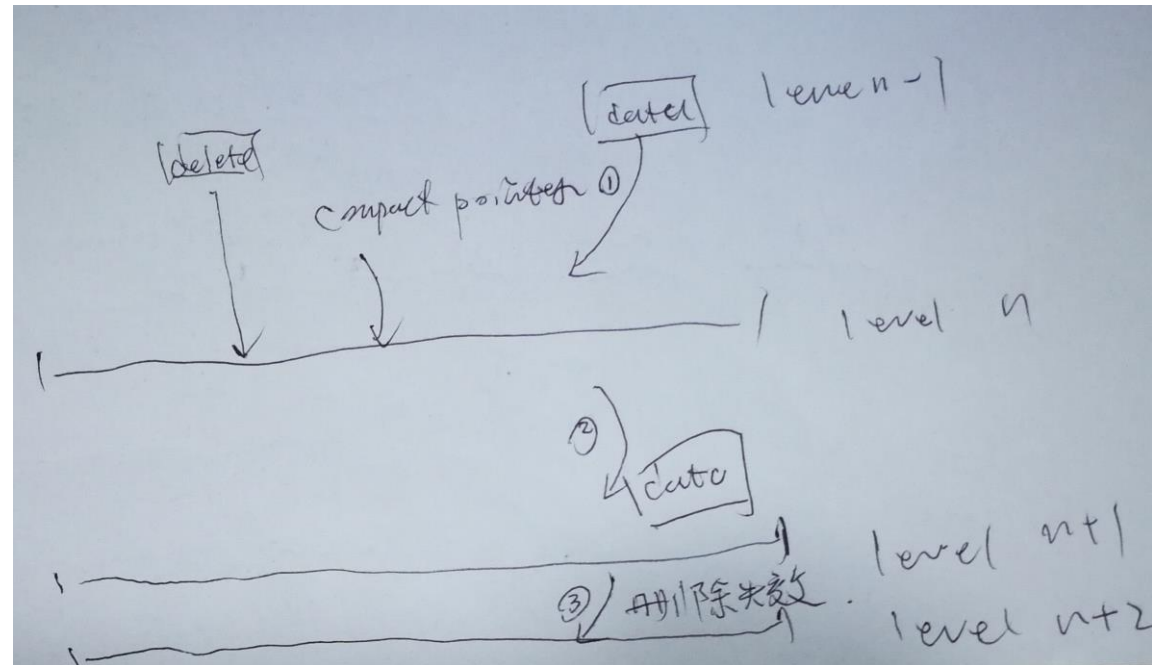 data level n-1
delete
compact pointer ①
level n
②
data
level n+1
③ 删除失效.
level n+2